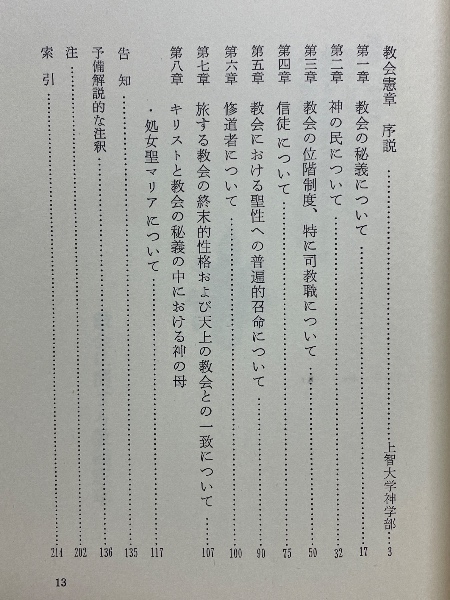 教会憲章 序説……上智大学神学部…3
第一章 教会の秘義について……17
第二章 神の民について……32
第三章 教会の位階制度、特に司教職について……50
第四章 信徒について……75
第五章 教会における聖性への普遍的召命について……90
第六章 修道者について……100
第七章 旅する教会の終末的性格および天上の教会との一致について……107
第八章 キリストと教会の秘義の中における神の母
・処女聖マリアについて……117
告知……135
予備解説的な注釈……136
注……202
索引……214
13